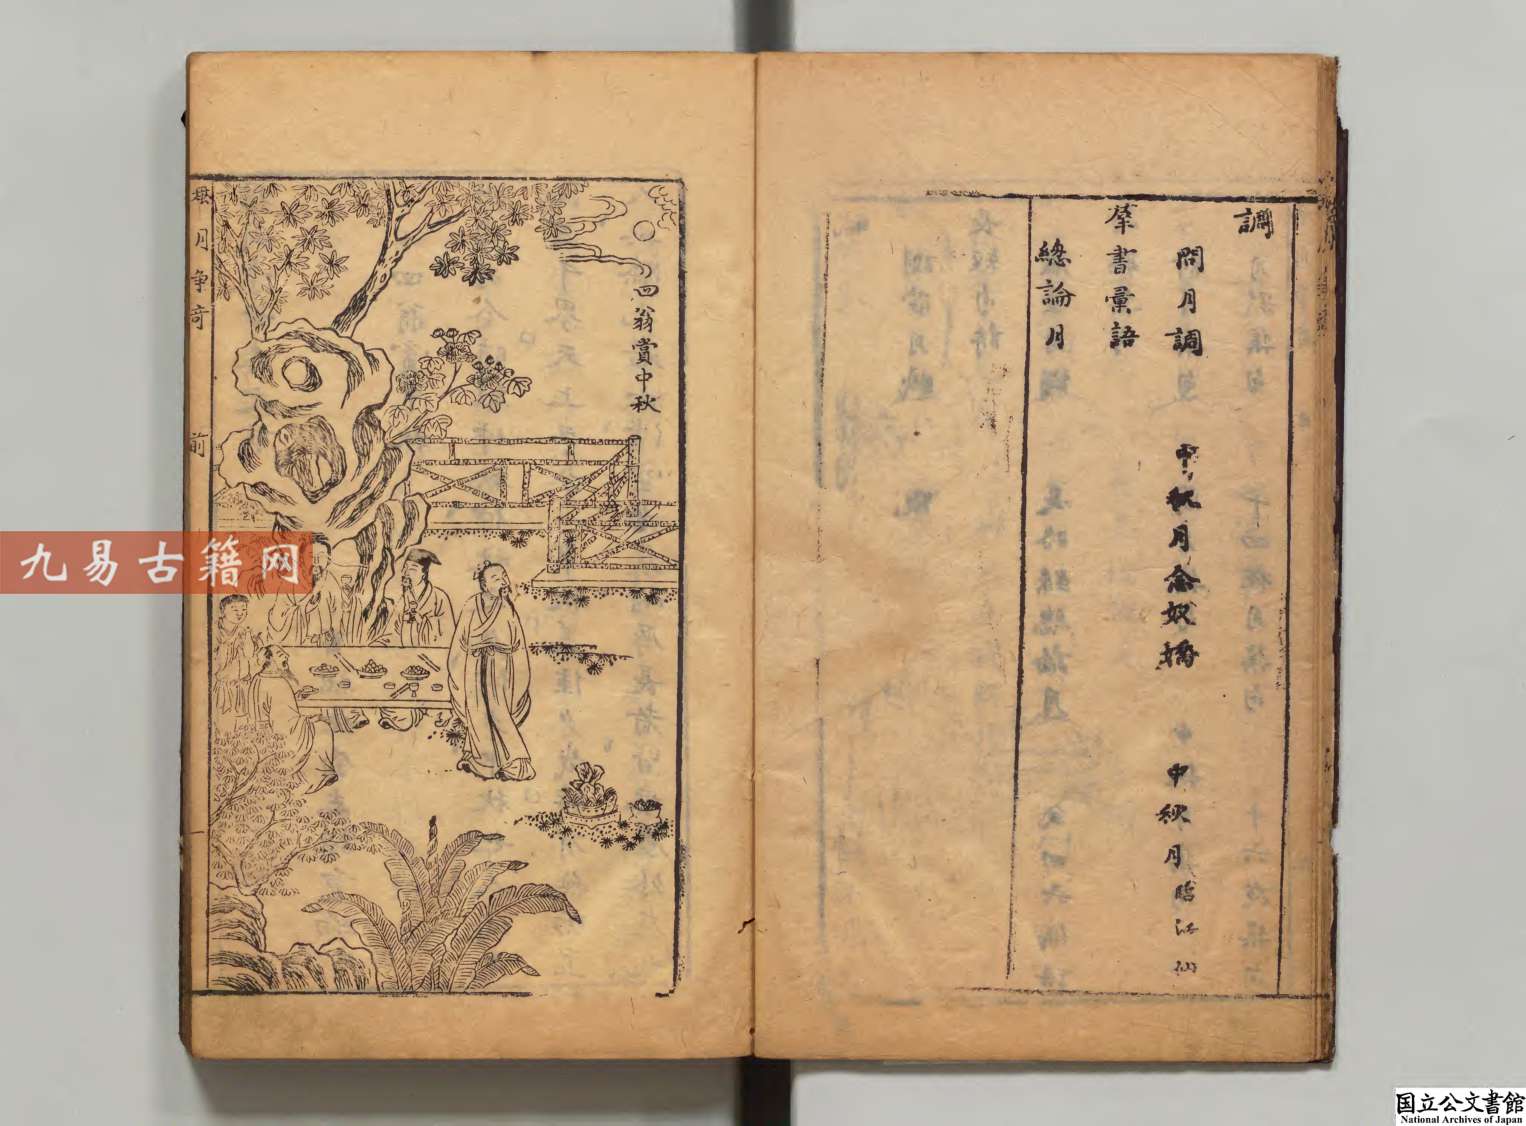 調
問月調 中秋月念奴嬌 中秋月臨江仙
羣書彙語
總論月
四翁賞中秋
月爭奇 前 一
九易古籍网
国立公文書館
National Archives of Japan